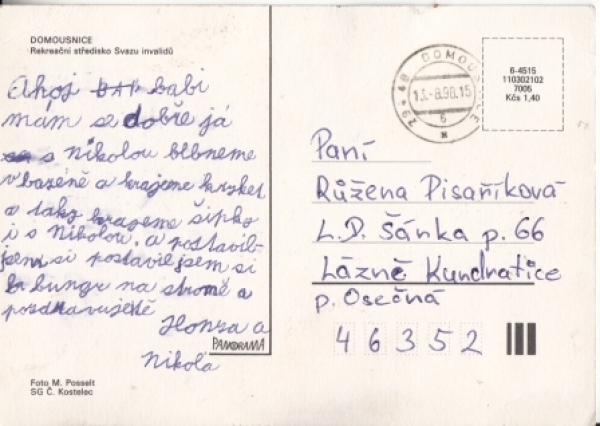 DOMOUSNICE
Rekreační středisko Svazu invalidů
Ahoj babi
mám se dobře já
s Nikolou blbneme
v bazéně a hrajeme kryket
a taky hrajeme šipky
i s Nikolou, a postavil
jsem si postavil jsem si
bungr na stromě a
pozdravuje tě
Honza a
Nikola
PANORAMA
Foto M. Posselt
SG Č. Kostelec
DOMOUSNICE
294 48
13.-8.98.15
6
6-4515
110302102
7005
Kčs 1,40
Paní
Růžena Pisaříková
L.D. Šánka p. 66
Lázně Kundratice
p. Osečná
46352